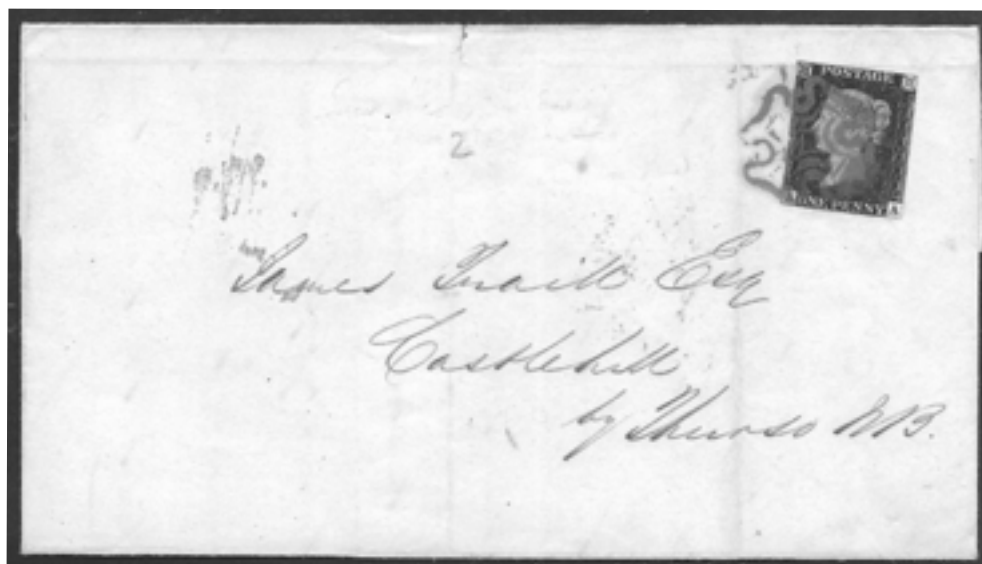 POSTAGE
ONE PENNY A
2
James Traill Esq
Castlehill
by Thurso N.B.